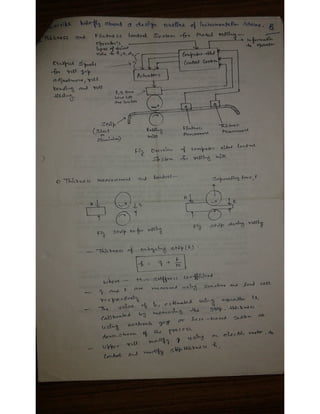 describe briefly about a design outline of Instrumentation Scheme. 8
Thickness and Flatness control System for Metal rolling.—
Operators
Output Signals
for roll gap
adjustment, roll
bending and roll
Actuators
Computer aided
Control System
information
to operator
Strip
(Steel
or
Aluminium)
Rolling
mill
Flatness
Measurement
Thickness
Measurement
Fig Overview of computer aided control
System for rolling mill
① Thickness measurement and control—
Separating force, F
Fig Strip before rolling
Fig Strip during rolling
— Thickness of outgoing strip (h)
h = g + F/M
where — M = stiffness coefficient
— g and F are measured using Sensors and load cell
respectively
— The value of h, estimated using equation is
Calibrated by measuring the strip thickness
using
down stream of the process
— Upper roll modify g using an electric motor to
control and modify strip thickness h.